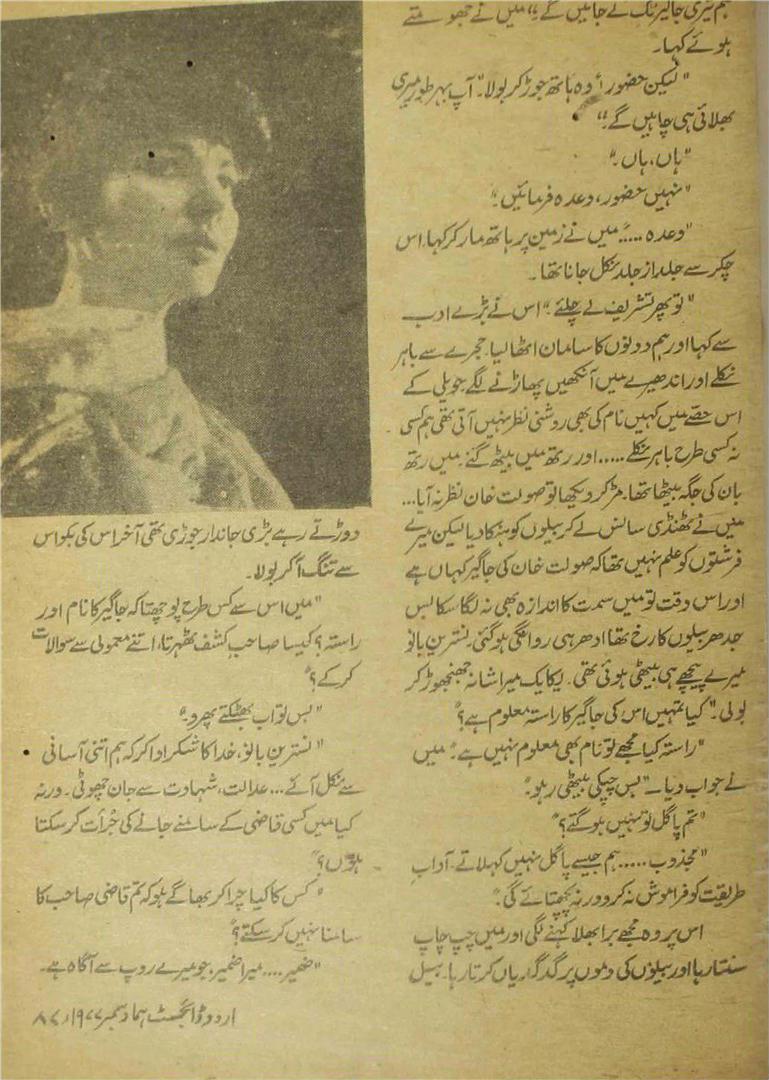 ہم تیری جاگیر تک لے جائیں گے۔" میں نے جھومتے
ہوئے کہا۔
"لیکن حضور! وہ ہاتھ جوڑ کر بولا۔" آپ بہر طور میری
بھلائی ہی چاہیں گے۔"
"ہاں، ہاں۔"
"نہیں حضور، وعدہ فرمائیں۔"
"وعدہ ..... میں نے زمین پر ہاتھ مار کر کہا۔ اس
چکر سے جلد از جلد نکل جانا تھا۔
"تو پھر تشریف لے چلئے۔" اس نے بڑے ادب
سے کہا اور ہم دونوں کا سامان اٹھا لیا۔ حجرے سے باہر
نکلے اور اندھیرے میں آنکھیں پھاڑنے لگے حویلی کے
اس حصے میں کہیں نام کی بھی روشنی نظر نہیں آتی تھی ہم کسی
نہ کسی طرح باہر نکلے ..... اور رتھ میں بیٹھ گئے۔ میں رتھ
بان کی جگہ بیٹھا تھا۔ مڑ کر دیکھا تو صولت خان نظر نہ آیا...
میں نے ٹھنڈی سانس لے کر بیلوں کو ہنکا دیا لیکن میرے
فرشتوں کو علم نہیں تھا کہ صولت خان کی جاگیر کہاں ہے
اور اس وقت تو میں سمت کا اندازہ بھی نہ لگا سکا بس
جدھر بیلوں کا رخ تھا ادھر ہی روانگی ہو گئی۔ نسترین بانو
میرے پیچھے ہی بیٹھی ہوئی تھی۔ یکایک میرا شانہ جھنجھوڑ کر
بولی۔" کیا تمہیں اس کی جاگیر کا راستہ معلوم ہے؟"
"راستہ کیا مجھے تو نام بھی معلوم نہیں ہے۔" میں
نے جواب دیا۔ "بس چپکی بیٹھی رہو۔"
"تم پاگل تو نہیں ہو گئے؟"
"مجذوب ..... ہم جیسے پاگل نہیں کہلاتے۔ آدابِ
طریقت کو فراموش نہ کرو ورنہ پچھتائے گی۔"
اس پر وہ مجھے برا بھلا کہنے لگی اور میں چپ چاپ
سنتا رہا اور بیلوں کی دموں پر گدگدیاں کرتا رہا۔ بیل
دوڑتے رہے بڑی جاندار جوڑی تھی آخر اس کی بکواس
سے تنگ آ کر بولا۔
"میں اس سے کس طرح پوچھتا کہ جاگیر کا نام اور
راستہ؟ کیسا صاحب کشف ٹھہرتا، اتنے معمولی سے سوالات
کر کے؟"
"بس تو اب بھٹکتے پھرو۔"
"نسترین بانو، خدا کا شکر ادا کر کہ ہم اتنی آسانی
سے نکل آئے ... عدالت، شہادت سے جان چھوٹی۔ ورنہ
کیا میں کسی قاضی کے سامنے جانے کی جرأت کر سکتا
ہوں؟"
"کس کا کیا چرا کر بھاگے ہو کہ تم قاضی صاحب کا
سامنا نہیں کر سکتے؟"
"ضمیر .... میرا ضمیر، جو میرے روپ سے آگاہ ہے۔
اردو ڈائجسٹ ہما دسمبر ۱۹۷۷ء ۸۷